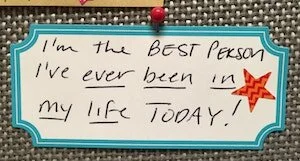 I'm the BEST PERSON
I've ever been in
my life TODAY!